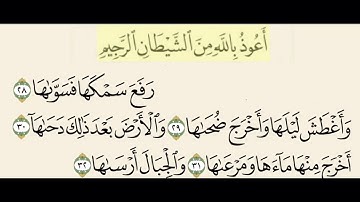 أَعُوذُ بِاللَّهِ مِنَ الشَّيْطَانِ الرَّجِيمِ
رَفَعَ سَمْكَهَا فَسَوَّىٰهَا ٢٨
وَأَغْطَشَ لَيْلَهَا وَأَخْرَجَ ضُحَىٰهَا ٢٩ وَٱلْأَرْضَ بَعْدَ ذَٰلِكَ دَحَىٰهَآ ٣٠
أَخْرَجَ مِنْهَا مَآءَهَا وَمَرْعَىٰهَا ٣١ وَٱلْجِبَالَ أَرْسَىٰهَا ٣٢